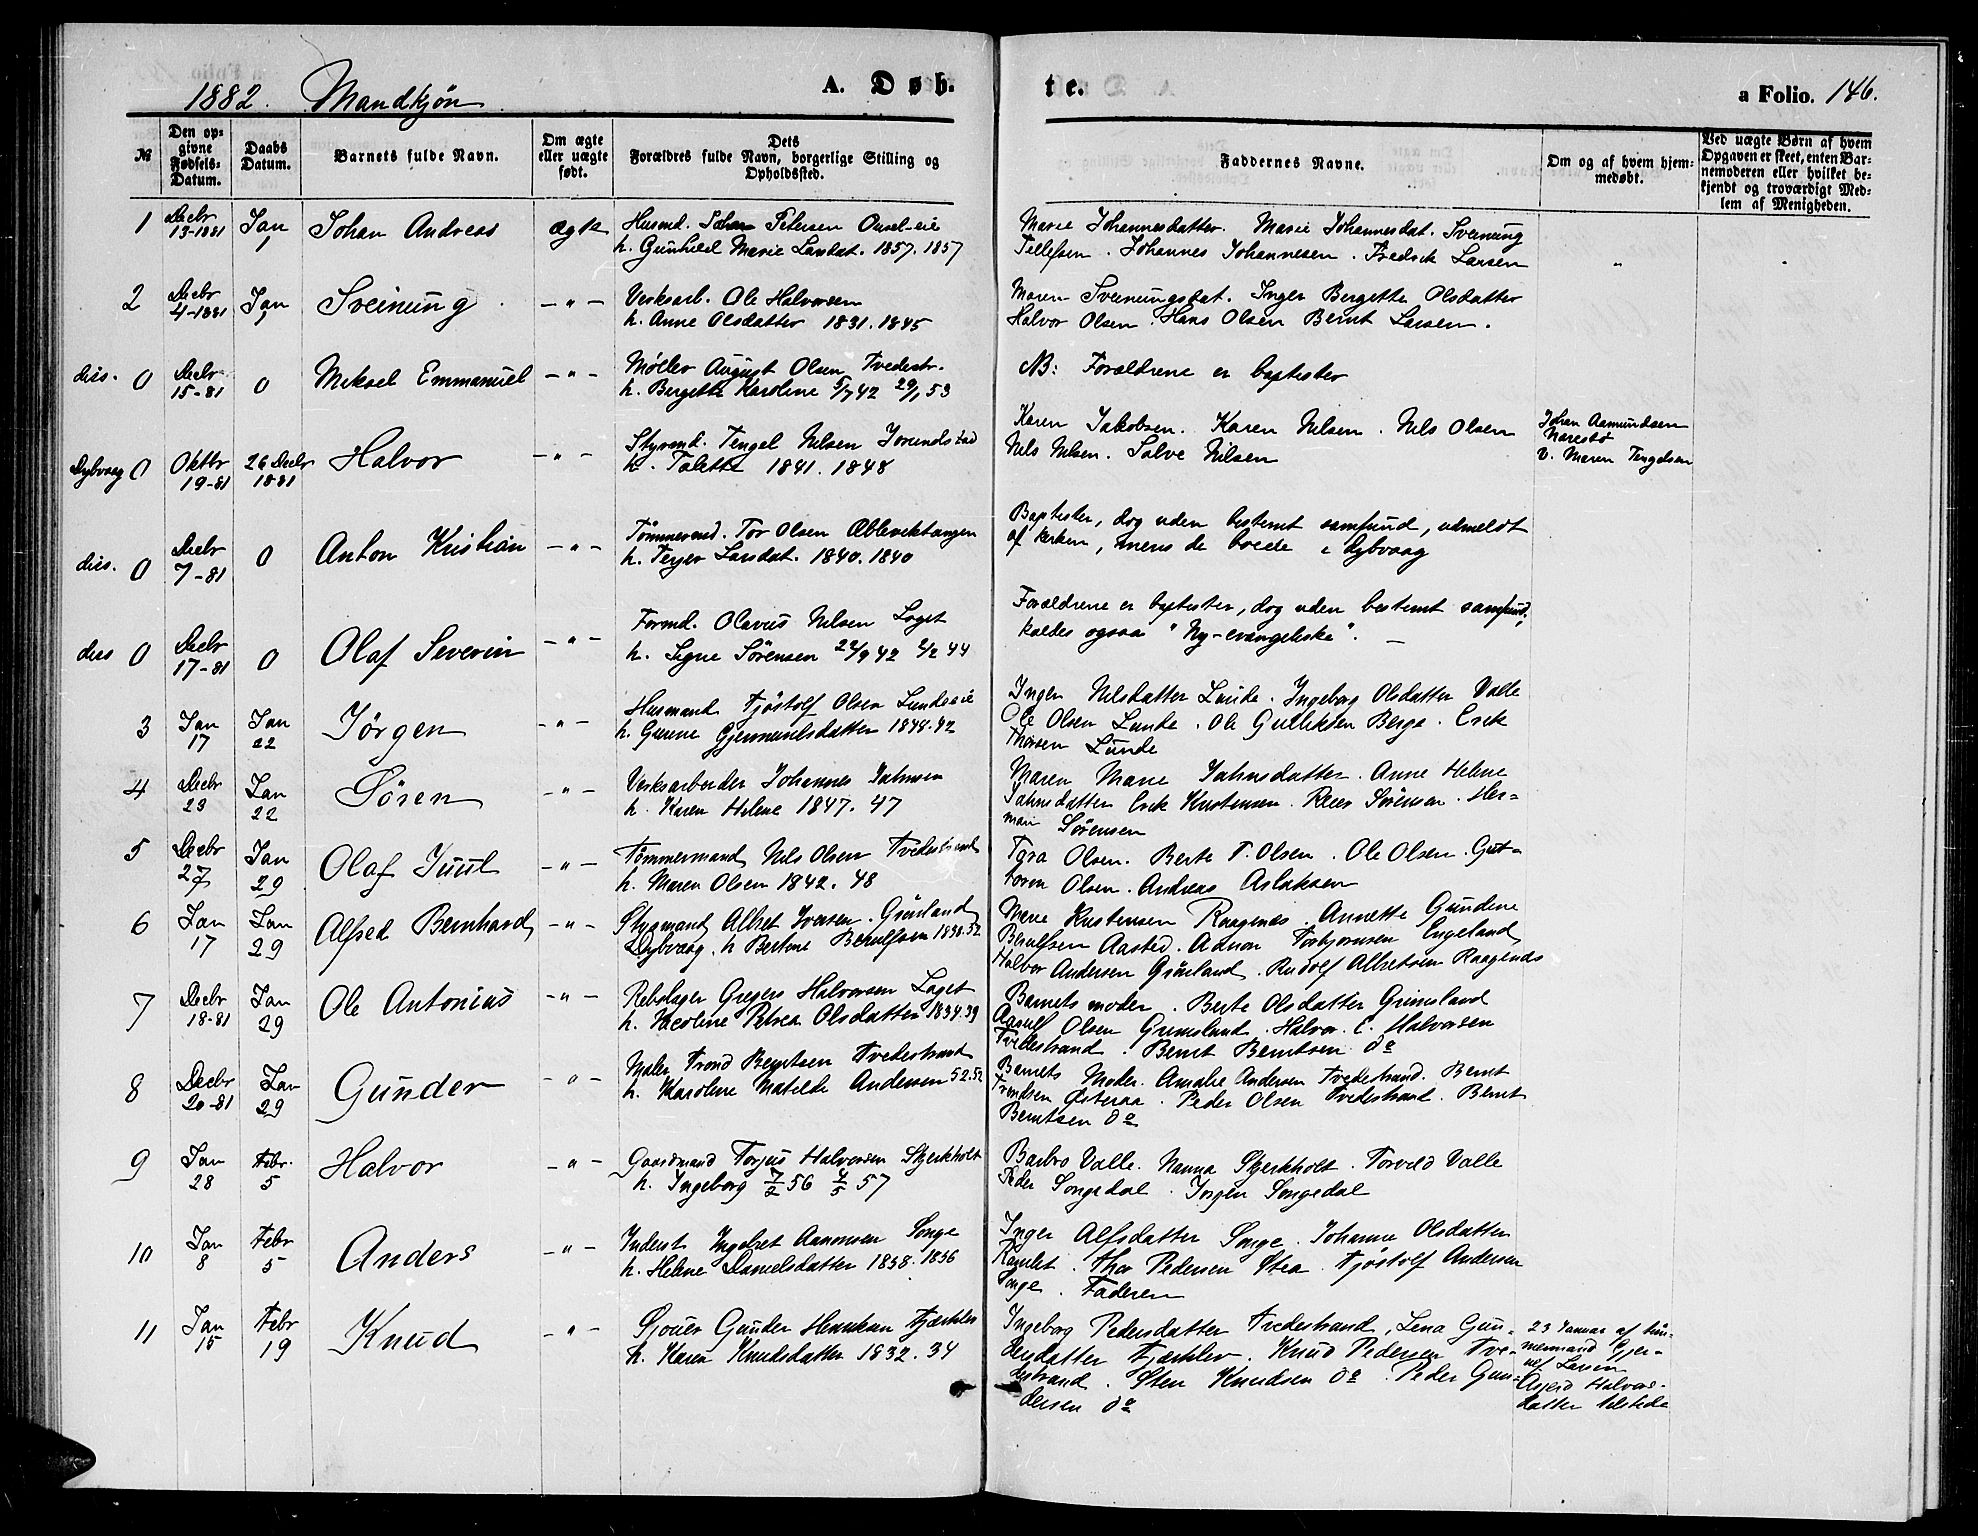 1882. Mandkjøn
A. Døb-
te.
a Folio. 146.
№
Den op-
givne
Fødsels-
Datum.
Daabs
Datum.
Barnets fulde Navn.
Om ægte
eller uægte
født.
Dets
Forældres fulde Navn, borgerlige Stilling og
Opholdssted.
Faddernes Navne.
Om og af hvem hjem-
medøbt.
Ved uægte Børn af hvem
Opgaven er skeet, enten Bar-
nemoderen eller hvilket be-
kjendt og troværdigt Med-
lem af Menigheden.
1 Decbr 13-1881 Jan 1 Johan Andreas ægte
Husmd. Johan Petersen
h. Gunhild Marie Larsdat. 1857. 1857
Marie Johannesdatter. Marie Johannesdat. Sveinung
Tellefsen. Johannes Johannesen. Fredrik Larsen
2 Decbr 4-1881 Jan 1 Sveinung – " –
Verksarb. Ole Halvorsen
h. Anne Olsdatter 1831. 1845
Maren Sveinungsdat. Inger Bergette Olsdatter
Halvor Olsen. Hans Olsen Bernt Larsen.
diss. 0 Decbr 15-81 0 Mikael Emmanuel – " –
Møller August Olsen Tvedestr.
h. Bergette Karoline 5/7 42 29/1 53
NB: Forældrene er baptister
Dybvaag 0 Oktbr 19-81 26 Decbr 1881 Halvor – " –
Styrmd. Tengel Nilsen Jorundstad
h. Tolette 1841. 1848
Karen Jakobsen. Karen Nilsen. Nils Olsen
Nils Nilsen. Salve Nilsen
Johan Aamundsen
Narestø
v. Maren Tengelsen
diss. 0 Decbr 7-81 0 Anton Kristian – " –
Tømmermd. Tor Olsen Æbleviktangen
h. Terjer Larsdat. 1840. 1840
Baptister, dog uden bestemt samfund, udmeldt
af kirken, mens de boede i Dybvaag
diss 0 Decbr 17-81 0 Olaf Severin – " –
Formd. Olavus Nilsen Laget
h. Signe Sørensen 22/9 42 2/2 44
Forældrene er baptister, dog uden bestemt samfund,
kaldes ogsaa "Ny-evangeliske". –
3 Jan 17 Jan 22 Jörgen – " –
Husmand Tjöstolf Olsen Lundeeie
h. Gunne Gjermundsdatter 1848. 42
Inger Nilsdatter Lunde. Ingeborg Olsdatter Valle
Ole Olsen Lunde. Ole Gulliksen Berge. Erik
Thorsen Lunde
4 Decbr 23 Jan 22 Sören – " –
Verksarbeider Johannes Jahnsen
h. Karen Helene 1847. 47
Maren Marie Jahnsdatter. Anne Helene
Jahnsdatter Erik Kristensen. Reier Sørensen. Her-
man Sørensen
5 Decbr 27 Jan 29 Olaf Juul – " –
Tømmermand Nils Olsen Tvedestrand
h. Maren Olsen 1842. 48
Tora Olsen. Berte T. Olsen. Ole Olsen. Gut-
torm Olsen. Andreas Aslaksen
6 Jan 17 Jan 29 Alfred Bernhard – " –
Styrmand Albret Iversen. Grønland
Dybvaag. h Bertine Berulfsen 1850. 52
Marie Kristensen Raagenæs. Annette Gundine
Berulfsen Aasted. Adnon Torbjørnsen Engeland
Halvor Andersen Grønland. Rudolf Albretsen Raagenæs
7 Decbr 18-81 Jan 29 Ole Antonius – " –
Rebslager Gregers Halvorsen Laget
h. Nicoline Petrea Olsdatter 1834. 39
Barnets moder. Berte Olsdatter Grimsland
Aasulf Olsen Grimsland. Halvor C. Halvorsen
Tvedestrand. Bernt Berntsen do
8 Decbr 20-81 Jan 29 Gunder – " –
Maler Trond Berntsen Tvedestrand
h. Karoline Matilde Andersen 52. 52
Barnets Moder. Amalie Andersen Tvedestrand. Bernt
Trondsen Østeraa. Peder Olsen Tvedestrand. Bernt
Berntsen do
9 Jan 28 Febr. 5 Halvor – " –
Gaardmand Torjus Halvorsen Skjerkholt
h. Ingeborg 7/2 56 4/5 57
Barbro Valle. Nanna Skjerkholt. Torvild Valle
Peder Songedal. Jørgen Songedal
10 Jan 8 Febr 5 Anders – " –
Inderst Ingebret Aanonsen Songe
h. Helene Danielsdatter 1858. 1856
Inger Alfsdatter Songe. Johanne Olsdatter
Ramlet. Thor Pedersen Stea. Tjöstolf Andersen
Songe. Faderen
11 Jan 15 Febr 19 Knud – " –
Sjouer Gunder Henriksen Fjærklev
h. Karen Knudsdatter 1832. 34
Ingeborg Pedersdatter Tvedestrand, Lena Gun-
dersdatter Fjærklev. Knud Pedersen Tve-
destrand. Sten Knudsen do Peder Gun-
dersen do
23 Januar af tøm-
mermand Gjer-
ulf Larsen
Asgjerd Halvors-
datter tilstede